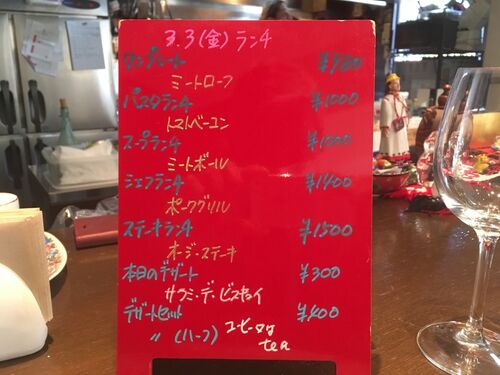 3.3(金)ランチ
ワンプレート ¥980
ミートローフ
パスタランチ ¥1000
トマトベーコン
スープランチ ¥1000
ミートボール
シェフランチ ¥1400
ポークグリル
ステーキランチ ¥1500
オージーステーキ
本日のデザート ¥300
サラミ・デ・ビスコィ
デザートセット ¥400
〃 (ハーフ) コーヒーor
tea